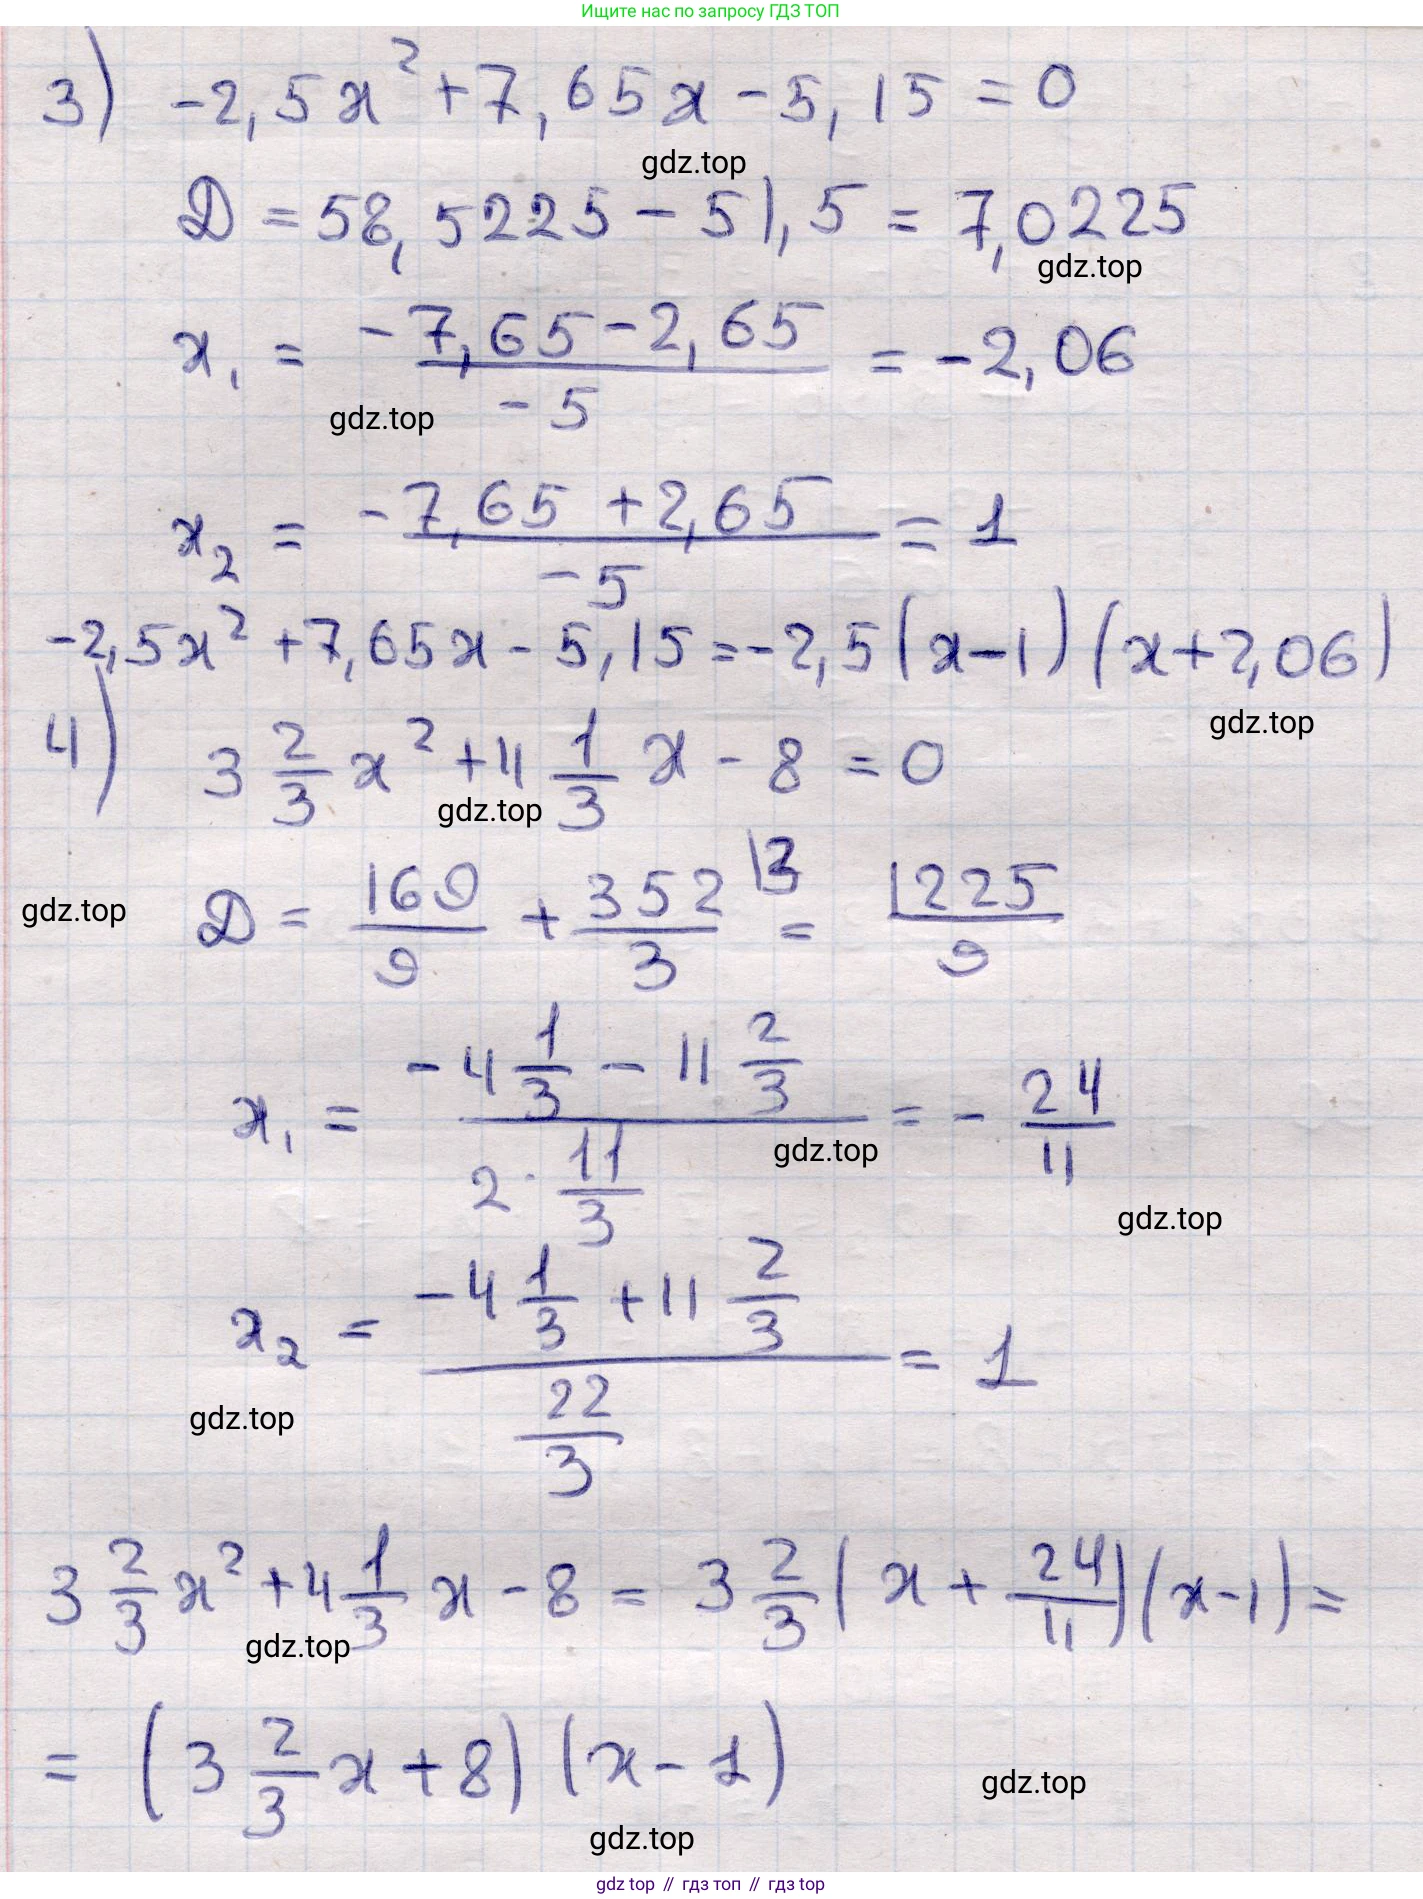 Ищите нас по запросу ГДЗ ТОП
3) -2,5x² + 7,65x - 5,15 = 0
gdz.top
D = 58,5225 - 51,5 = 7,0225
gdz.top
x₁ = (-7,65 - 2,65)/(-5) = -2,06
gdz.top
x₂ = (-7,65 + 2,65)/(-5) = 1
-2,5x² + 7,65x - 5,15 = -2,5(x-1)(x+2,06)
gdz.top
4) 3 2/3 x² + 4 1/3 x - 8 = 0
gdz.top
D = 169/9 + 352/3 |3 = 1225/9
gdz.top
x₁ = (-4 1/3 - 11 2/3)/(2 · 11/3) = - 24/11
gdz.top
gdz.top
x₂ = (-4 1/3 + 11 2/3)/(22/3) = 1
gdz.top
3 2/3 x² + 4 1/3 x - 8 = 3 2/3 (x + 24/11)(x-1) =
gdz.top
= (3 2/3 x + 8)(x - 1)
gdz.top
gdz.top
gdz top // гдз топ // гдз top